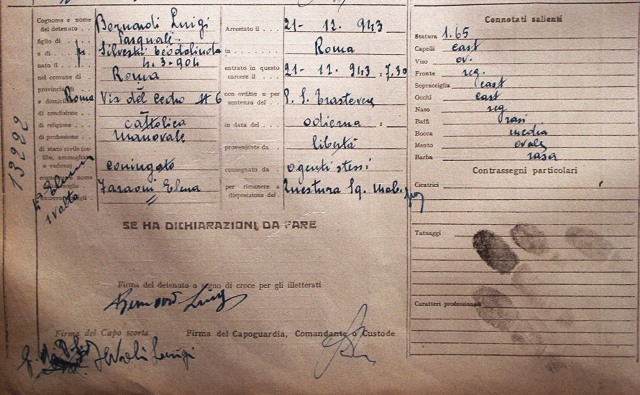 Cognome e nome del detenuto Bernardi Luigi
figlio di Pasquali
e di Silvestri Teodolinda
nato il 4.3.904
nel comune di Roma
provincia di
e domiciliato Roma Via del Cedro № 6
di condizione
di religione cattolica
di professione Manovale
di stato civile coniugato
Faraoni Elena
13222
1 Volta
Arrestato il 21-12.943
in Roma
entrato in questo carcere il 21-12.943, 7,30
sentenza del P. S. Trastevere
in data del odierna
proveniente da libertà
consegnato da agenti stessi
per rimanere a disposizione del Questura Sq. mob.
SE HA DICHIARAZIONI DA FARE
Firma del detenuto o segno di croce per gli illetterati
Bernardi Luigi
Firma del Capo scorta
Firma del Capoguardia, Comandante o Custode
Luigi
Connotati salienti
Statura 1.65
Capelli cast
Viso ov.
Fronte reg.
Sopracciglia cast
Occhi cast
Naso reg
Baffi rasi
Bocca media
Mento ovale
Barba rasa
Contrassegni particolari
Cicatrici
Tatuaggi
Caratteri professionali